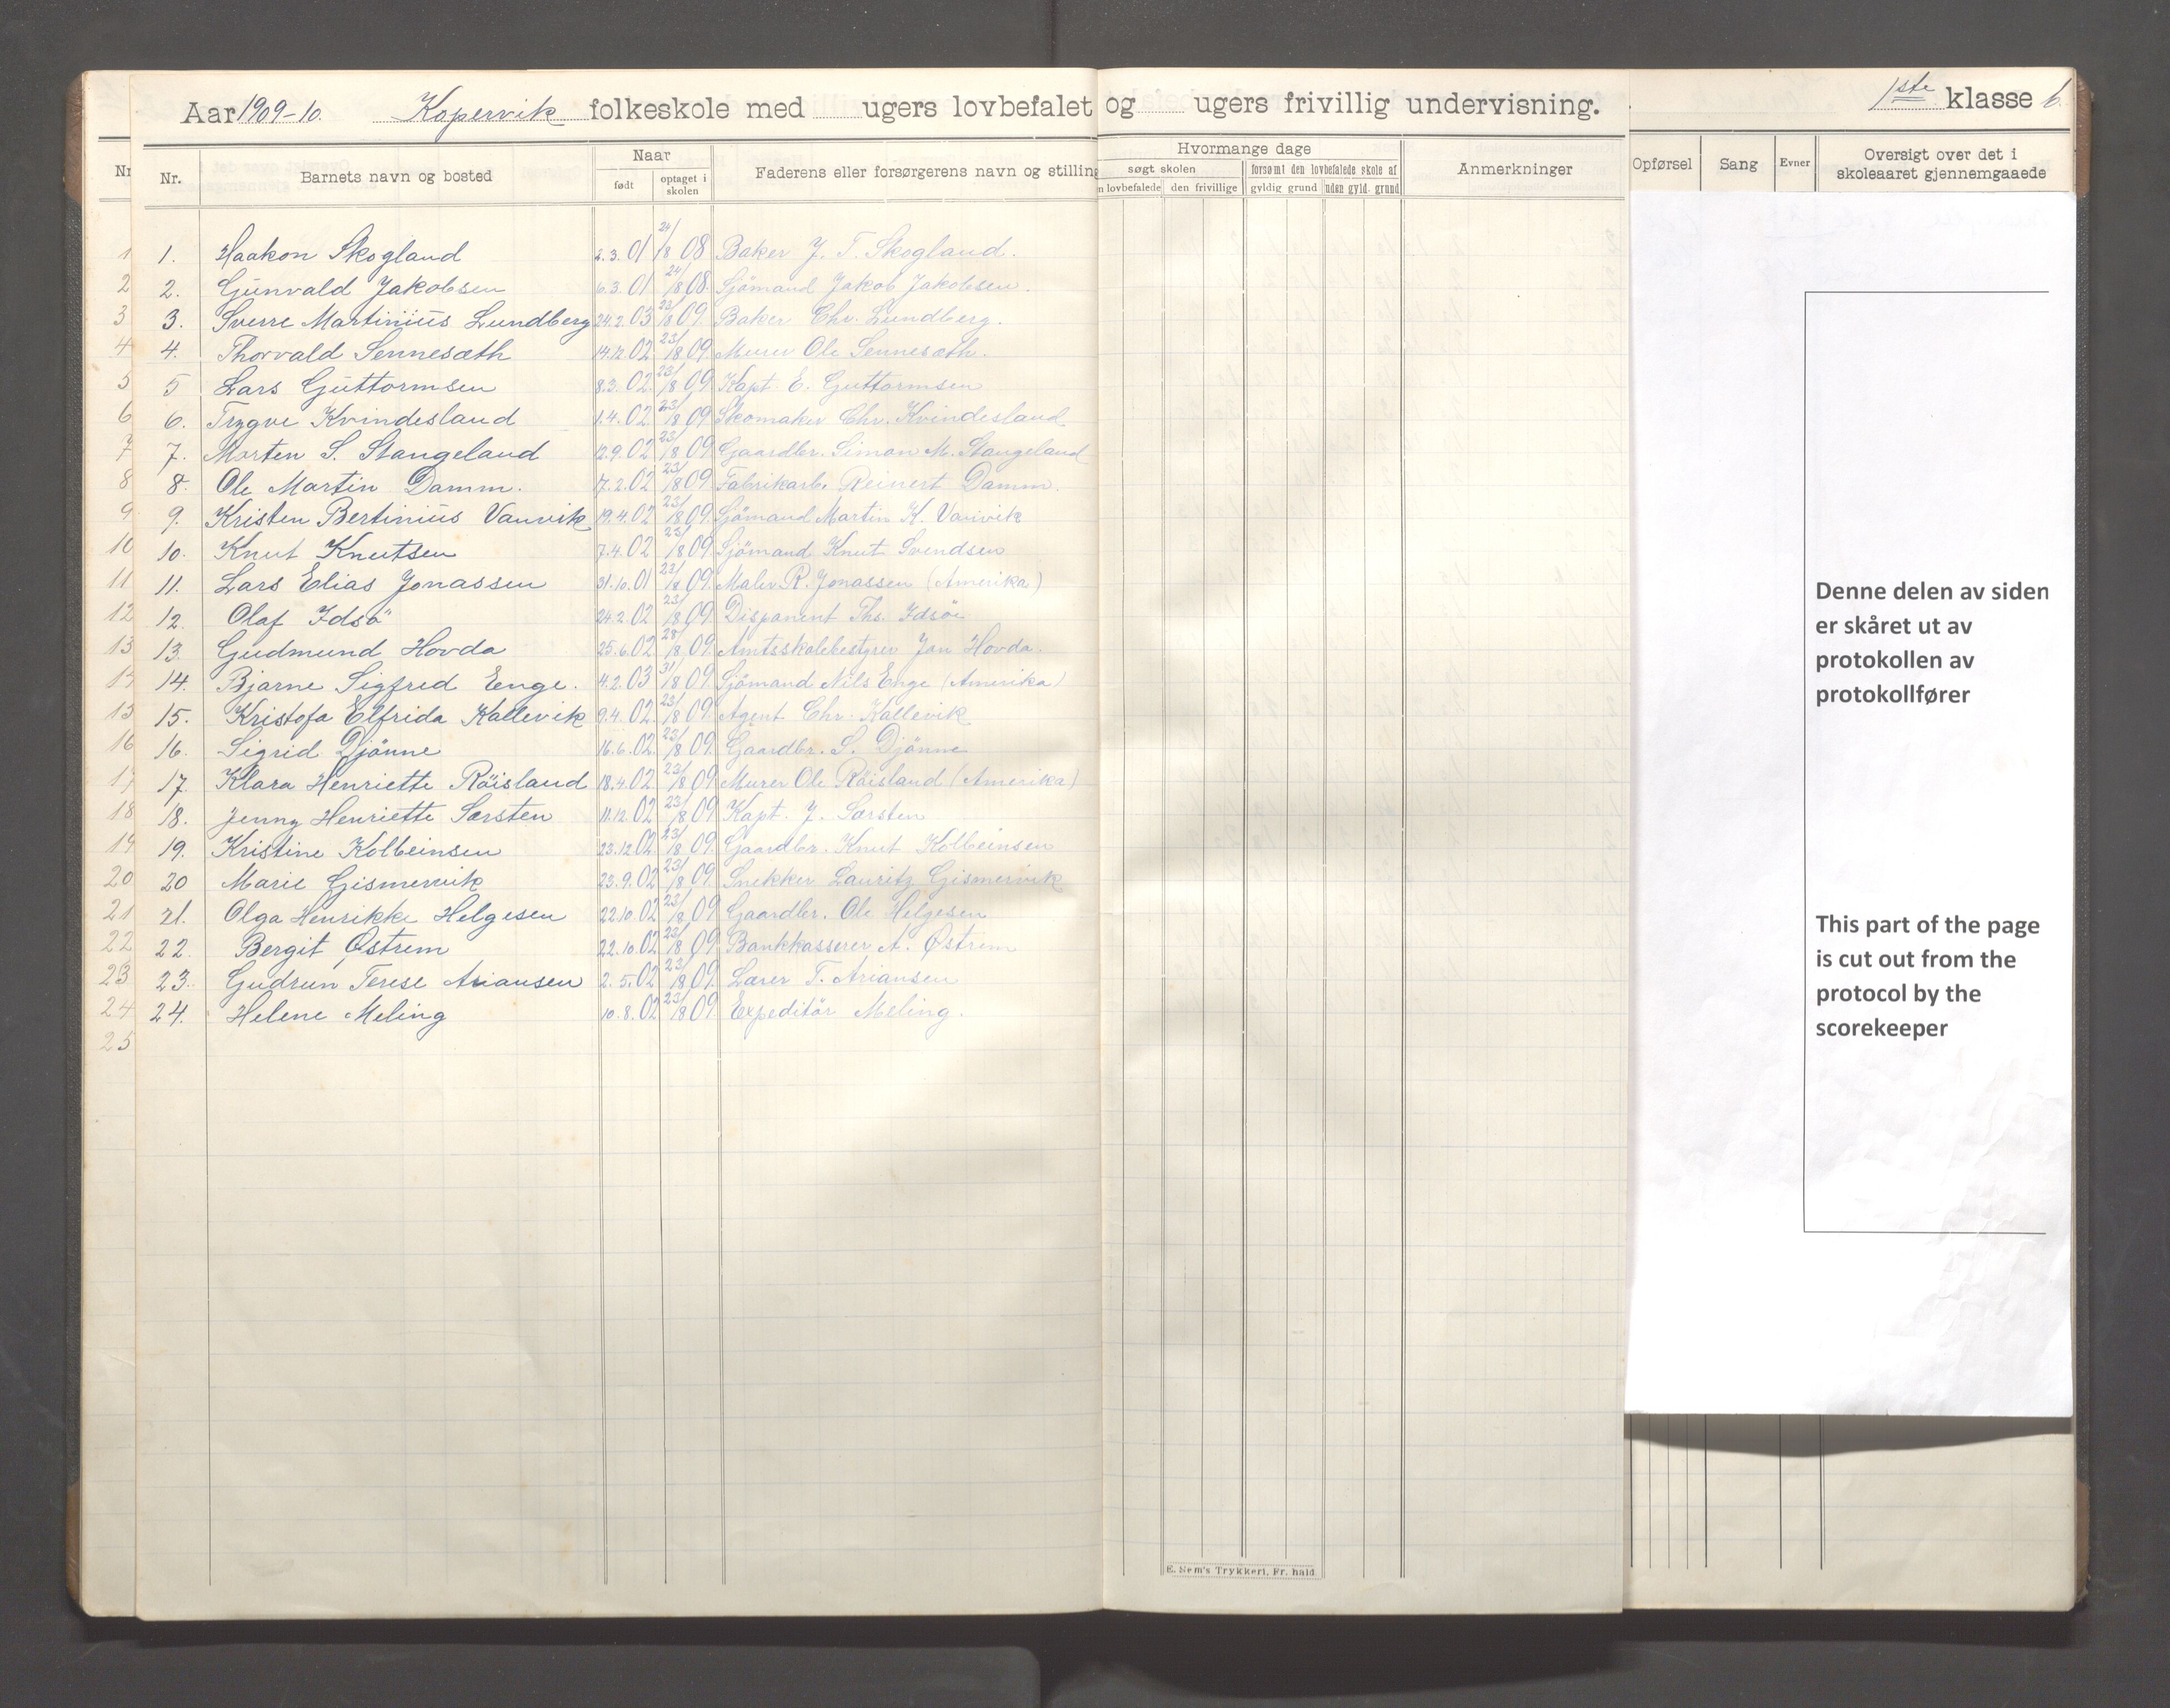 Aar 1909-10. Kopervik folkeskole med ugers lovbefalet og ugers frivillig undervisning. 1ste klasse b.
Nr. Barnets navn og bosted Naar født optaget i skolen Faderens eller forsørgerens navn og stilling Hvormange dage søgt skolen lovbefalede den frivillige forsømt den lovbefalede skole af gyldig grund uden gyld. grund Anmerkninger Opførsel Sang Evner Oversigt over det i skoleaaret gjennemgaaede
1. Haakon Skogland 2.3.01 24/8 08 Baker J. T. Skogland.
2. Gunvald Jakobsen 6.3.01 24/8 08. Sjömand Jakob Jakobsen.
3. Sverre Martinius Lundberg 24.2.03 23/8 09 Baker Chr. Lundberg.
4. Thorvald Sennesæth 14.12.02 23/8 09. Murer Ole Sennesæth.
5 Lars Guttormsen 8.3.02 23/8 09 Kapt. E. Guttormsen
6. Trygve Kvindesland 1.4.02 23/8 09 Skomaker Chr. Kvindesland
7. Morten S. Stangeland 12.9.02 23/8 09 Gaardbr. Simon M. Stangeland
8. Ole Martin Damm. 7.2.02 23/8 09 Fabrikarb. Reinert Damm.
9. Kristen Bertinius Vanvik 19.4.02 23/8 09. Sjömand Martin K. Vanvik
10. Knut Knutsen 7.4.02 23/8 09 Sjömand Knut Svendsen
11. Lars Elias Jonassen 31.10.01 23/8 09. Maler R. Jonassen (Amerika)
12. Olaf Idsö 24.2.02 23/8 09 Disponent Ths. Idsöe
13. Gudmund Hovda 25.6.02 28/8 09. Amtsskolebestyrer Jan Hovda.
14. Bjarne Sigfred Enge. 4.2.03 31/8 09. Sjömand Nils Enge (Amerika)
15. Kristofa Elfrida Kallevik 9.4.02. 23/8 09. Agent Chr. Kallevik
16. Sigrid Djönne 16.6.02. 23/8 09. Gaardbr. S. Djönne
17. Klara Henriette Röisland 18.4.02 23/8 09 Murer Ole Röisland (Amerika)
18. Jenny Henriette Sørsten 11.12.02 23/8 09 Kapt. J. Sørsten
19. Kristine Kolbeinsen 23.12.02 23/8 09. Gaardbr. Knut Kolbeinsen
20 Marie Gismervik 23.9.02 23/8 09. Snekker Lauritz Gismervik
21. Olga Henrikke Helgesen 22.10.02 23/8 09 Gaardbr. Ole Helgesen
22. Bergit Østrem 22.10.02 23/8 09. Bankkasserer A. Østrem
23. Gudrun Terese Ariansen 2.5.02 23/8 09. Lærer T. Ariansen
24. Helene Meling 10.8.02 23/8 09 Expeditör Meling.
25
Denne delen av siden
er skåret ut av
protokollen av
protokollfører
This part of the page
is cut out from the
protocol by the
scorekeeper